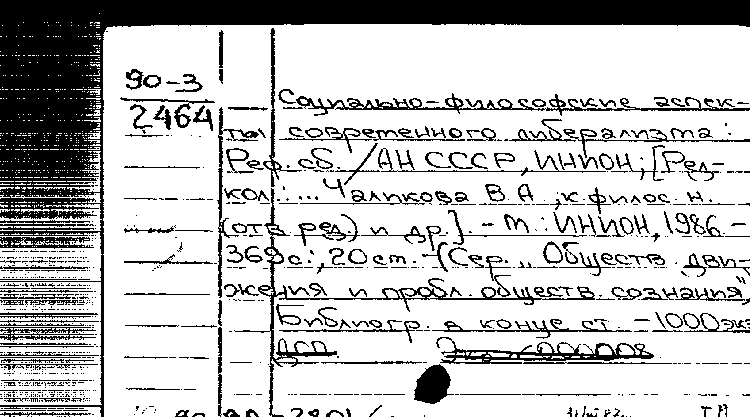 90-3
2464
Социально-философские аспек-
ты современного либерализма:
Реф. сб. / АН СССР, ИНИОН; [Ред-
кол.: ... Чаликова В А, к.филос. н.
(отв. ред.) и др.]. - М.: ИНИОН, 1986 -
369 с.; 20 см. - (Сер. „Обществ. дви-
жения и пробл. обществ. сознания"
Библиогр. в конце ст. - 1000 экз
ДСП